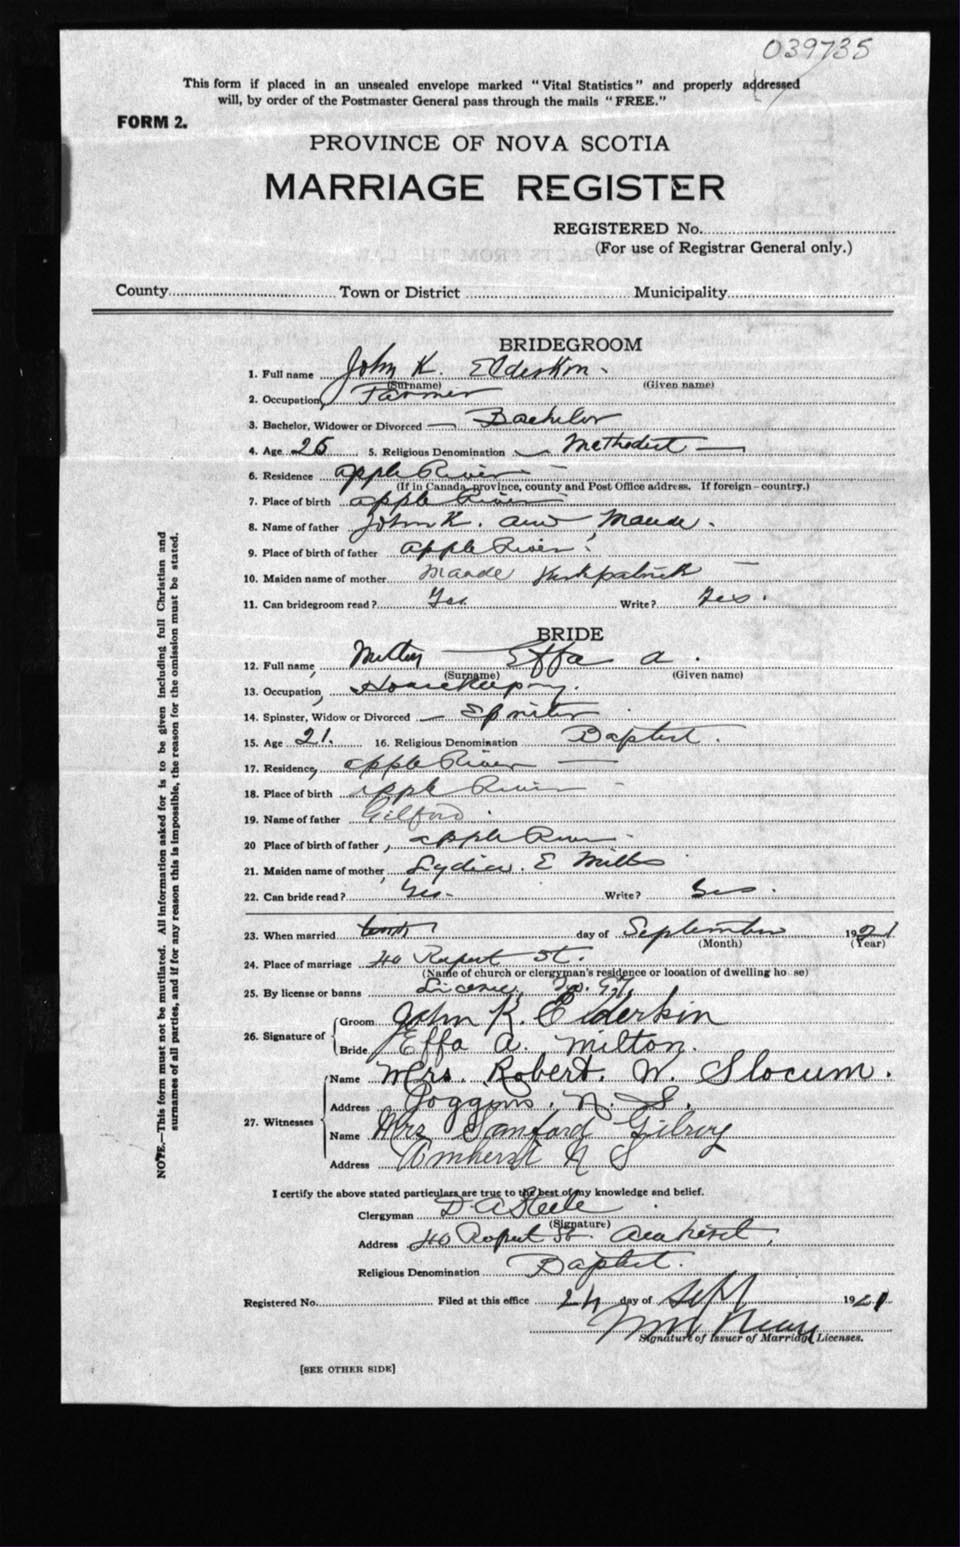 039735
This form if placed in an unsealed envelope marked "Vital Statistics" and properly addressed
will, by order of the Postmaster General pass through the mails "FREE."
FORM 2.
PROVINCE OF NOVA SCOTIA
MARRIAGE REGISTER
REGISTERED No.
(For use of Registrar General only.)
County Town or District Municipality
BRIDEGROOM
1. Full name John K. Elderkin
(Surname) (Given name)
2. Occupation, Farmer
3. Bachelor, Widower or Divorced — Bachelor
4. Age 26 5. Religious Denomination Methodist —
6. Residence apple River —
(If in Canada, province, county and Post Office address. If foreign - country.)
7. Place of birth apple River
8. Name of father John K. and Maude.
9. Place of birth of father apple River
10. Maiden name of mother Maude Kirkpatrick —
11. Can bridegroom read? Yes Write? Yes.
BRIDE
12. Full name, Milton — Effa a.
(Surname) (Given name)
13. Occupation, Housekeeping.
14. Spinster, Widow or Divorced — Spinster
15. Age 21. 16. Religious Denomination Baptist.
17. Residence, apple River —
18. Place of birth apple River —
19. Name of father Gilford.
20 Place of birth of father, apple River
21. Maiden name of mother, Lydia. E Mills
22. Can bride read? Yes. Write? Yes.
23. When married day of September 1921
(Month) (Year)
24. Place of marriage 40 Rupert St.
(Name of church or clergyman's residence or location of dwelling ho se)
25. By license or banns License
26. Signature of Groom John K. Elderkin
Bride Effa A. Milton.
27. Witnesses Name Mrs. Robert. W. Slocum.
Address Joggins. N. S.
Name Mrs Sanford Gilroy
Address Amherst N S
I certify the above stated particulars are true to the best of my knowledge and belief.
Clergyman D A Steele
(Signature)
Address 40 Rupert St Amherst.
Religious Denomination Baptist.
Registered No. Filed at this office 24 day of Sept 1921
Signature of Issuer of Marriage Licenses.
[SEE OTHER SIDE]
NOTE.—This form must not be mutilated. All information asked for is to be given including full Christian and
surnames of all parties, and if for any reason this is impossible, the reason for the omission must be stated.